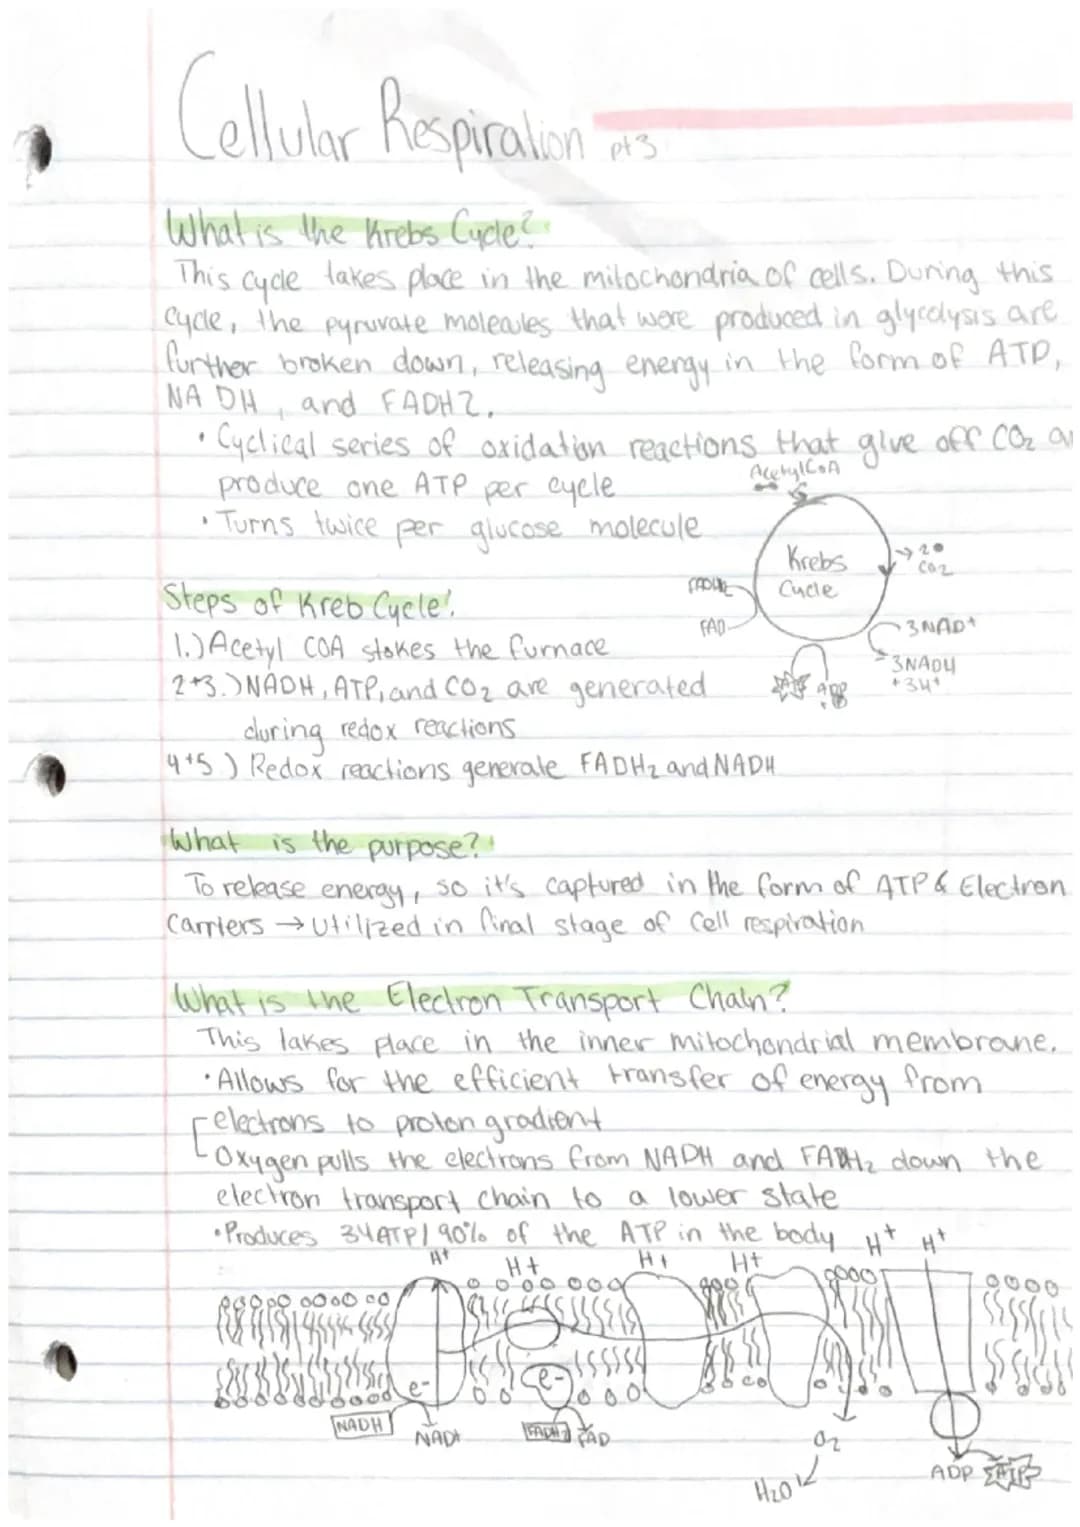 Cellular Respiration pt 3
What is the Krebs Cycle?
This cycle takes place in the mitochondria of cells. During this
cycle, the pyruvate molecules that were produced in glycolysis are
further broken down, releasing energy in the form of ATP,
NADH, and FADH2.
• Cyclical series of oxidation reactions that give off CO2 a
produce one ATP per cycle
• Turns twice per glucose molecule
Acetyl CoA
Krebs
Cycle
→ 2
CO2
FAD
3NAD+
3NADH
+3H+
ADP
Steps of Kreb Cycle:
1.) Acetyl COA stokes the furnace
2+3.) NADH, ATP, and CO2 are generated
during redox reactions
4+5.) Redox reactions generate FADH2 and NADH
What is the purpose?
To release energy, so it's captured in the form of ATP & Electron
Carriers → Utilized in final stage of cell respiration
What is the Electron Transport Chain?
This takes place in the inner mitochondrial membrane.
• Allows for the efficient transfer of energy from
electrons to proton gradient
Oxygen pulls the electrons from NADH and FADH2 down the
electron transport chain to a lower state
• Produces 34ATP/90% of the ATP in the body
H+ H+ H+ H+ H+ H+
e- e-
NADH NAD+ FADH2 FAD
O2
H2O
ADP ATP